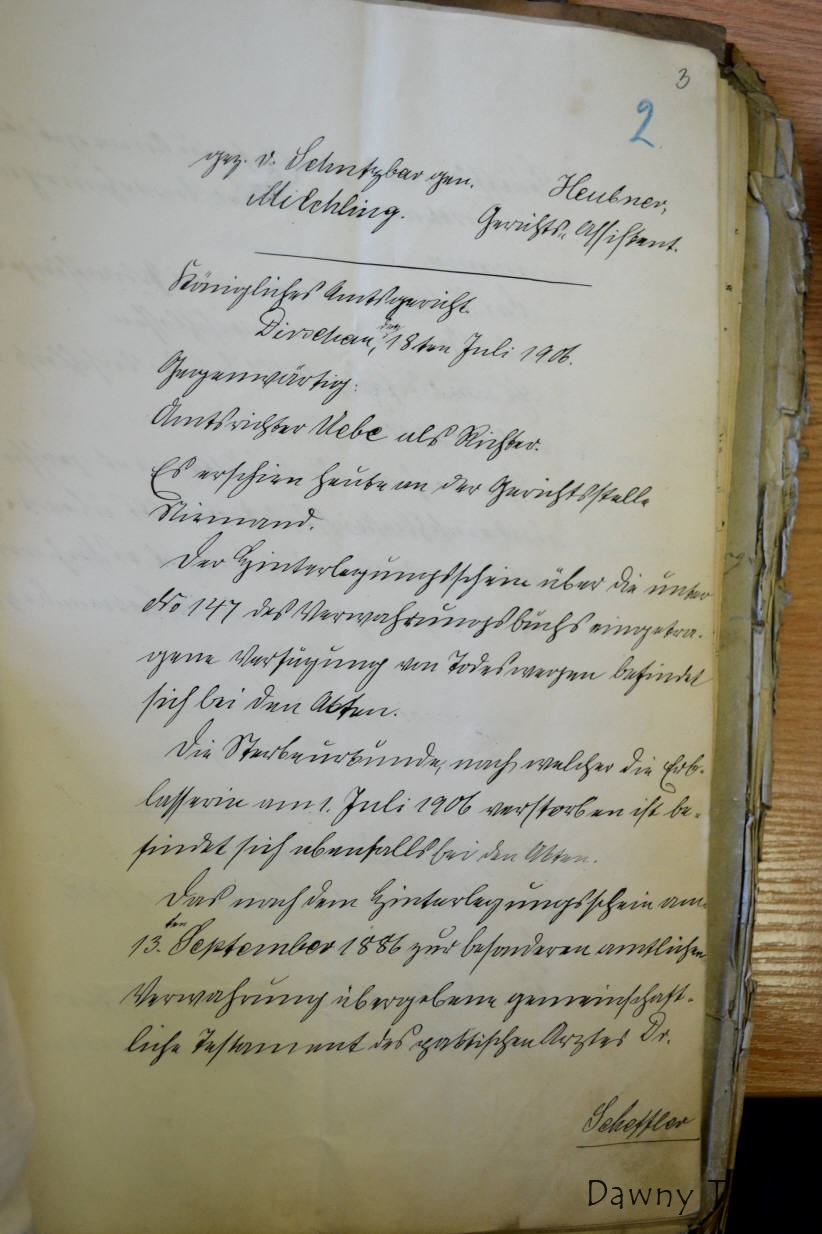 3
2
gez. v. Schutzbar gen. Heubner,
Milchling. Gerichts-Assistent.
Königliches Amtsgericht.
Dirschau, den 18ten Juli 1906.
Gegenwärtig:
Amtsrichter Uebe als Richter.
Es erschien heute an der Gerichtsstelle
Niemand.
Der Hinterlegungsschein über die unter
No 147 des Verwahrungsbuchs eingetra-
gene Verfügung von Todeswegen befindet
sich bei den Akten.
Die Sterbeurkunde, nach welcher die Erb-
lasserin am 1. Juli 1906 verstorben ist be-
findet sich ebenfalls bei den Akten.
Das nach dem Hinterlegungsschein am
13.ten September 1886 zur besonderen amtlichen
Verwahrung übergebene gemeinschaft-
liche Testament des praktischen Arztes Dr.
Scheffler
Dawny T